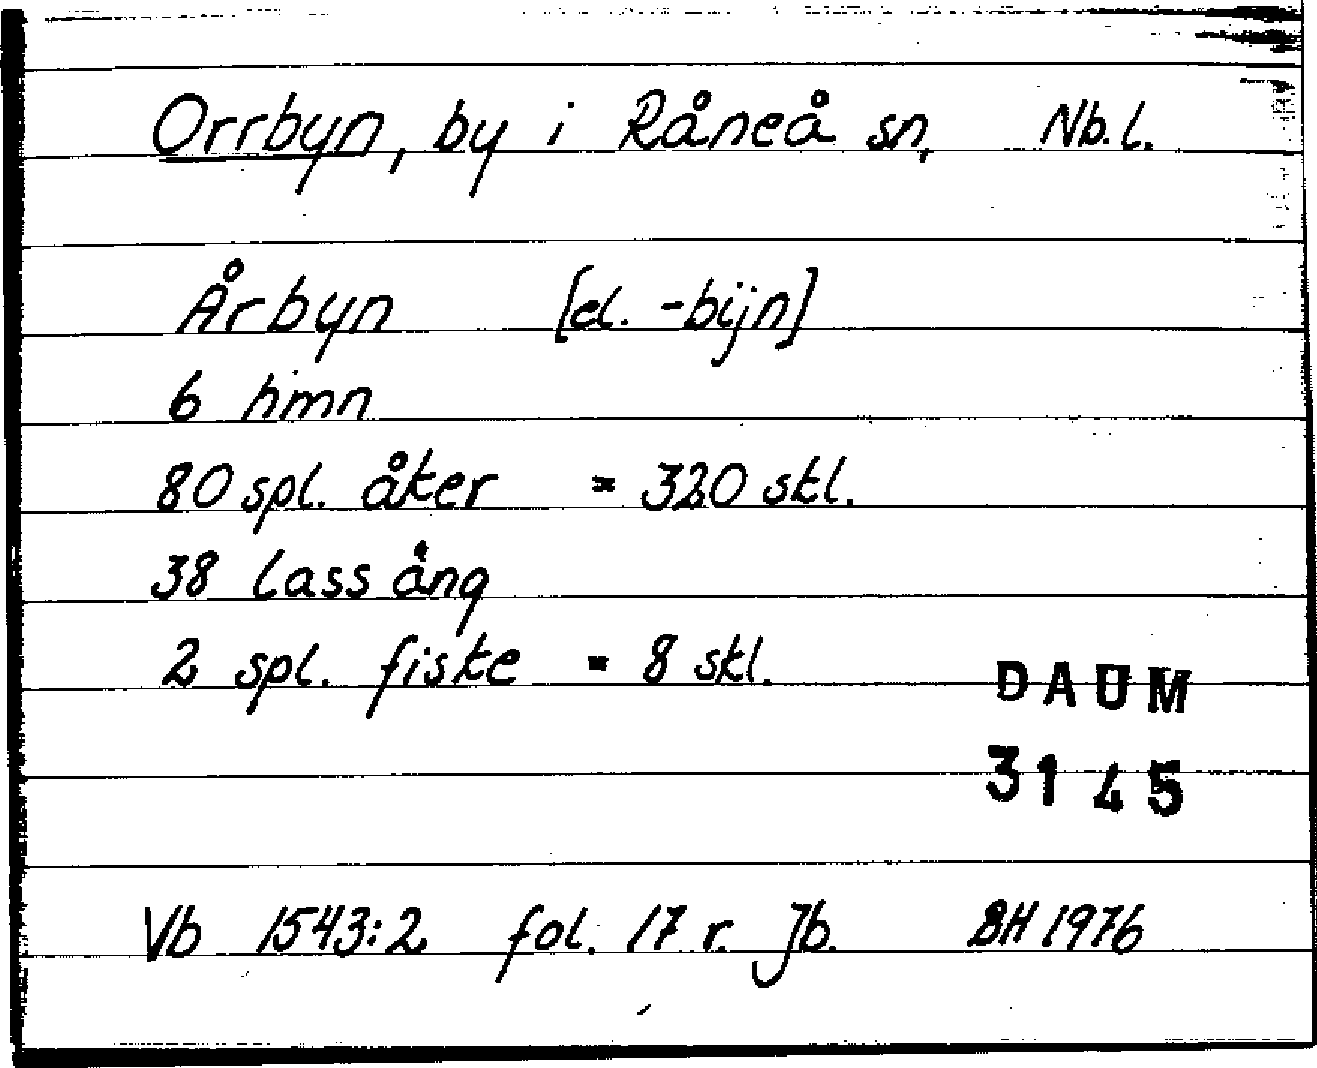 Orrbyn, by i Råneå sn, Nb.l.
Årbyn [el. -bijn]
6 hmn
80 spl. åker = 320 skl.
38 lass äng
2 spl. fiske = 8 skl.
DAUM
3145
Vb 1543:2 fol. 17 r. Jb. BH 1976